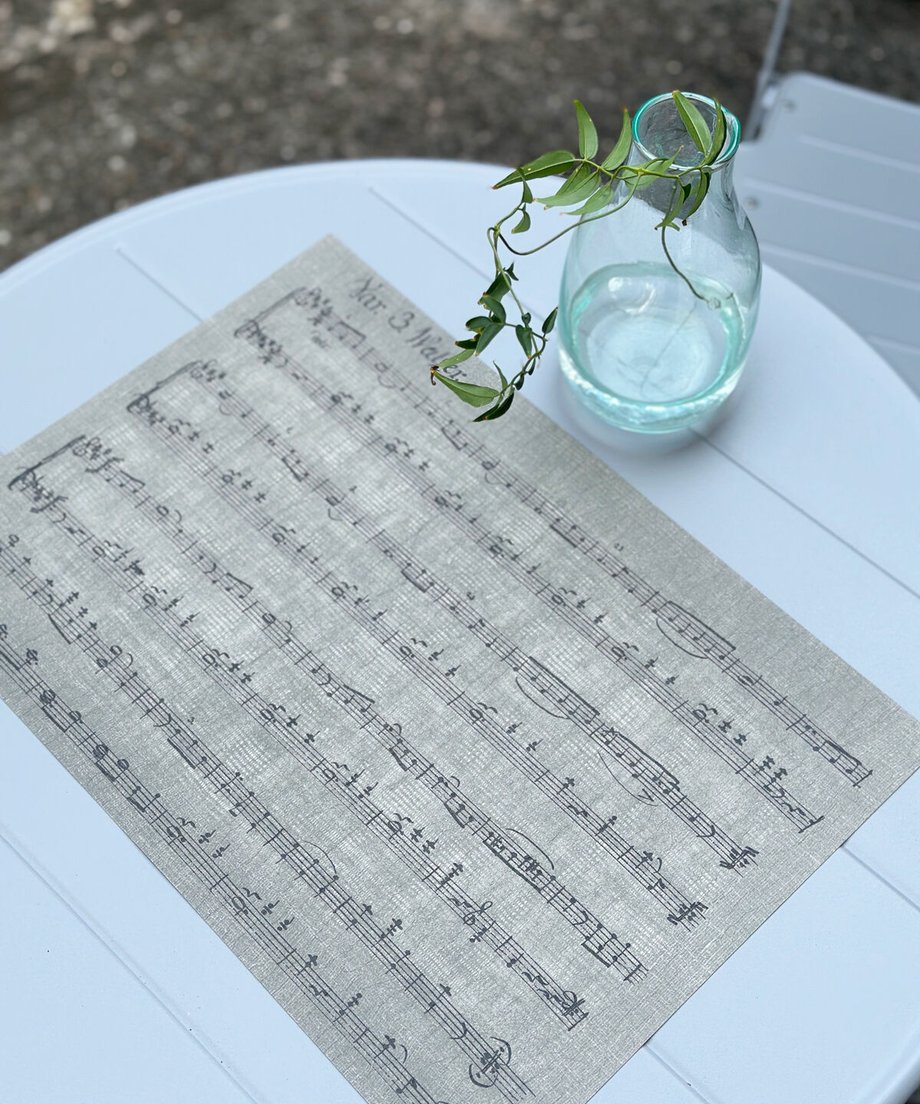 Nar. 3 Walzer